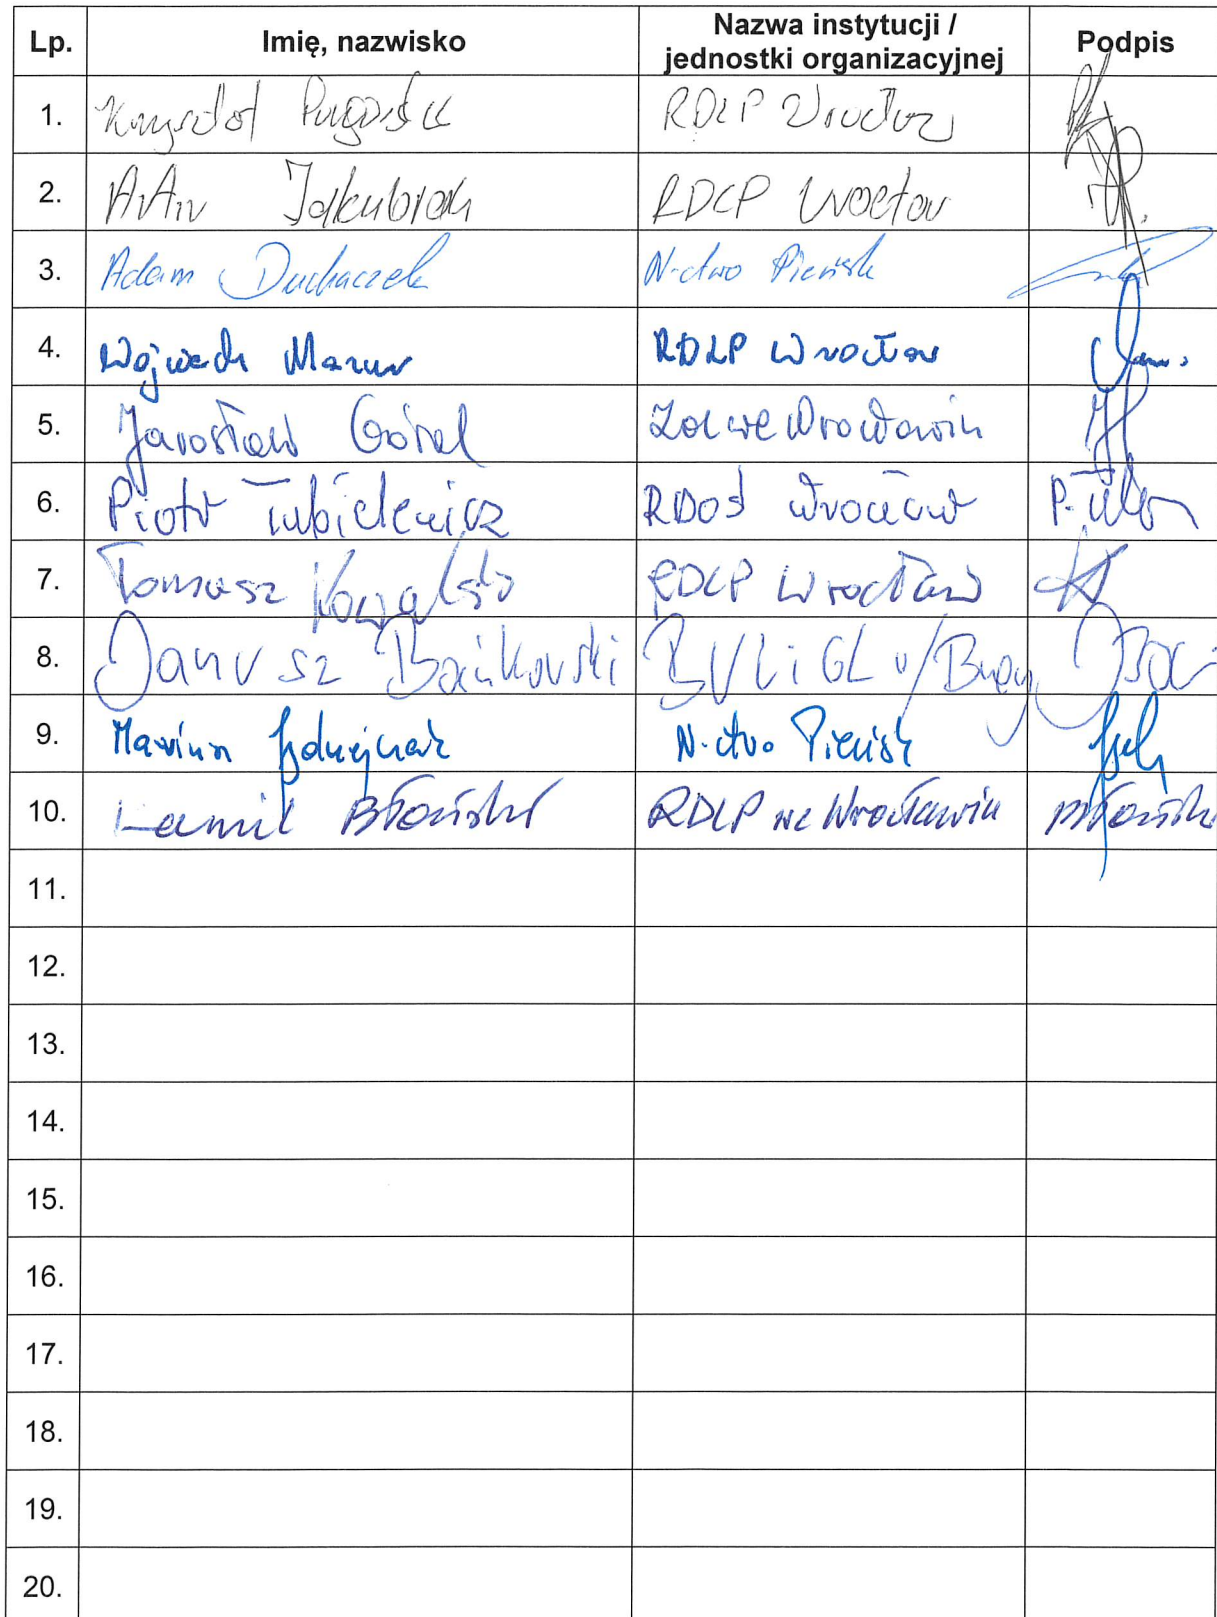 Lp. Imię, nazwisko Nazwa instytucji / jednostki organizacyjnej Podpis
1. Krzysztof RDLP Wrocław
2. Jakubiak RDLP Wrocław
3. Adam Duchaczek N-ctwo Pieńsk
4. Wojciech Mazur RDLP Wrocław
5. Jarosław Góral ZOL we Wrocławiu
6. Piotr Łubielewicz RDOŚ Wrocław
7. Tomasz Kowalski RDLP Wrocław
8. Janusz Bańkowski BULiGL o/Brzeg
9. N-ctwo Pieńsk
10. Kamil Błoński RDLP we Wrocławiu Błoński
11.
12.
13.
14.
15.
16.
17.
18.
19.
20.